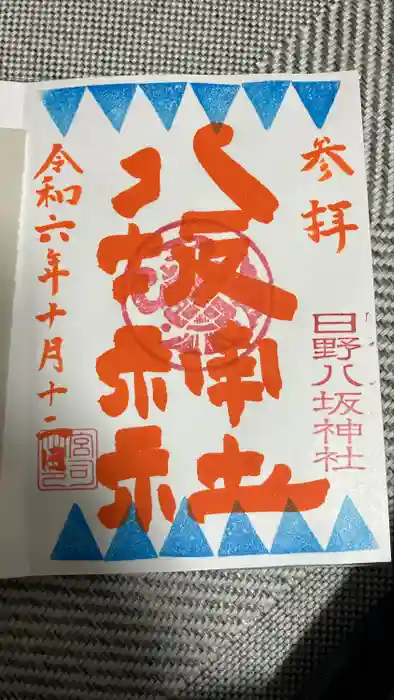 参拝
日野八坂神社
八坂神社
令和六年十月十二日
宮司